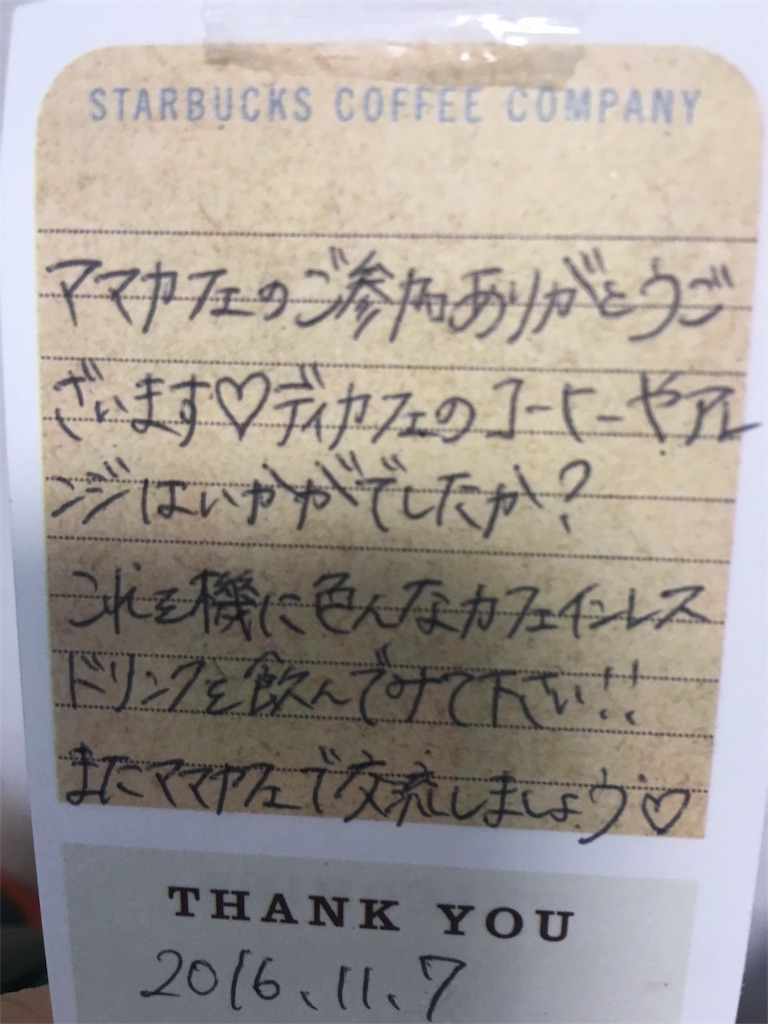 STARBUCKS COFFEE COMPANY
ママカフェのご参加ありがとうご
ざいます♡ディカフェのコーヒーやアレ
ンジはいかがでしたか?
これを機に色んなカフェインレス
ドリンクを飲んでみて下さい!!
またママカフェで交流しましょう♡
THANK YOU
2016.11.7